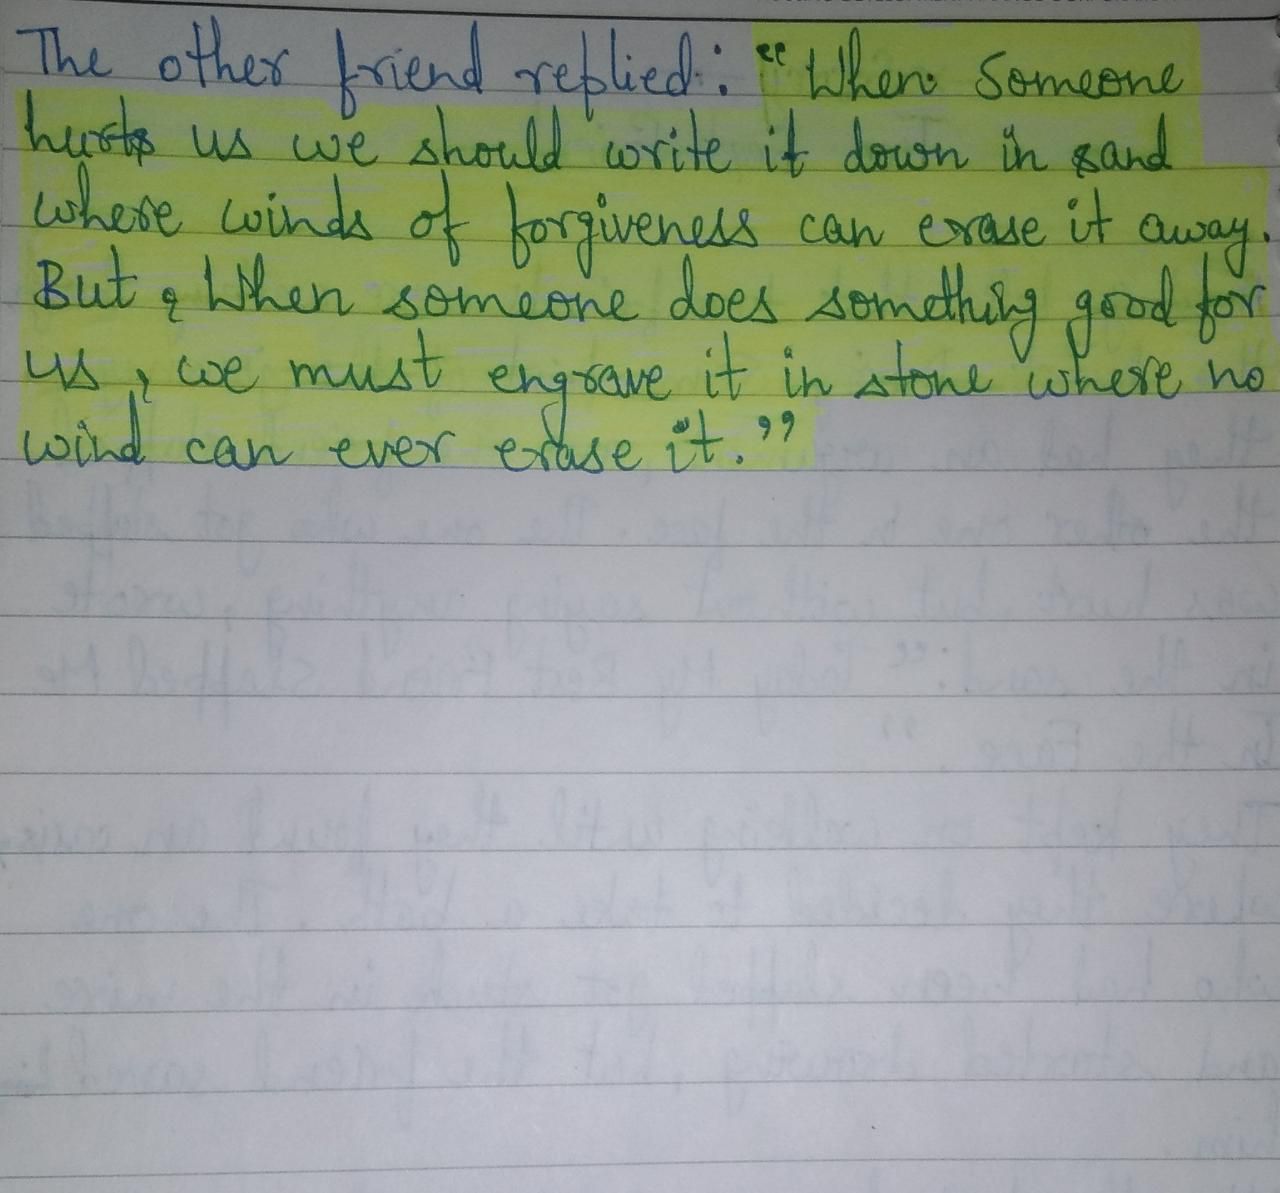 The other friend replied: "When Someone
hurts us we should write it down in sand
where winds of forgiveness can erase it away.
But, When someone does something good for
us, we must engrave it in stone where no
wind can ever erase it."